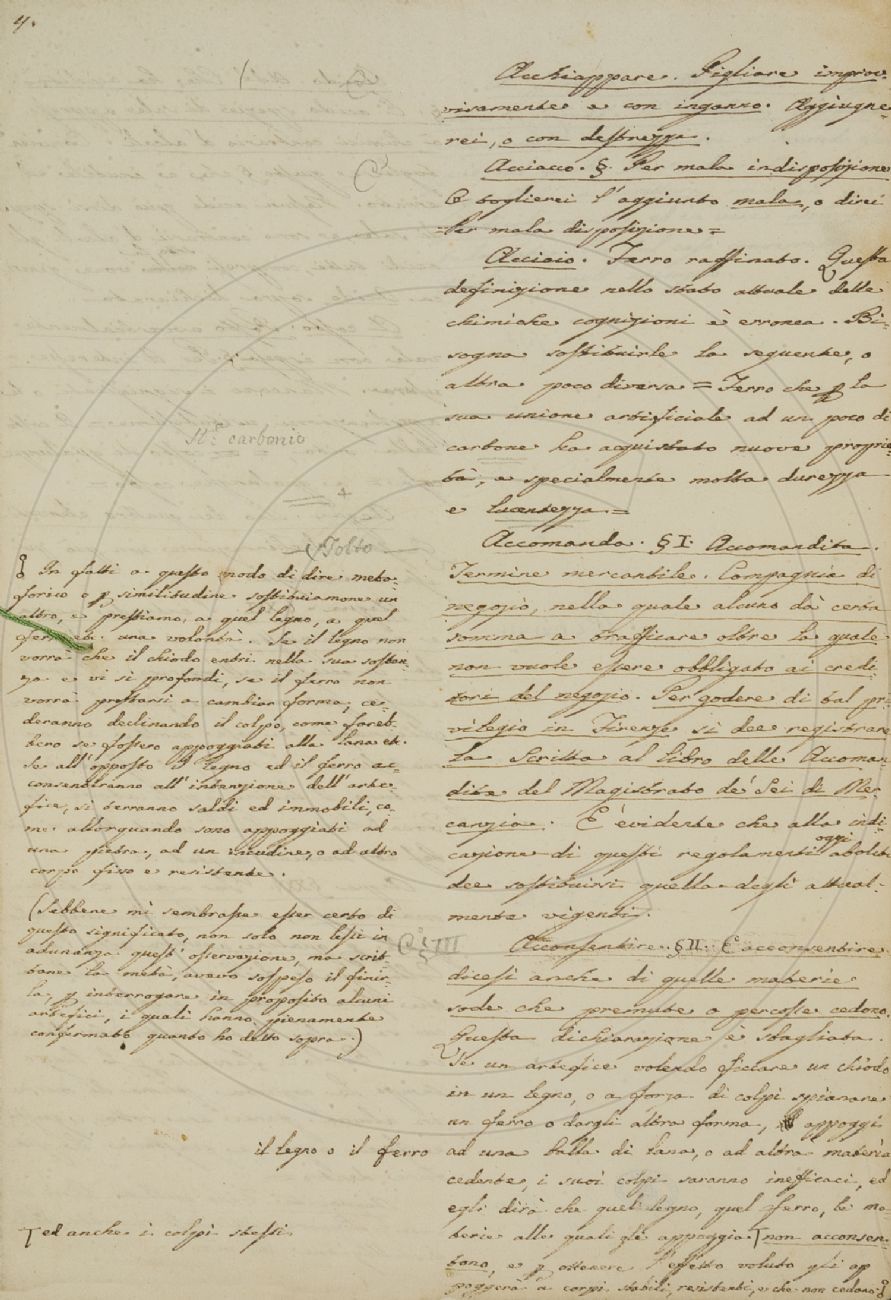 4.
Acchiappare. Pigliare improv-
visamente e con inganno. Aggiugne-
rei, o con destrezza.
Acciacco. §. Per mala indisposizione
E toglierei l'aggiunto mala, o direi
Per mala disposizione=
Acciaio. Ferro raffinato. Questa
definizione nello stato attuale delle
chimiche cognizioni è erronea. Bi-
sogna sostituirle la seguente, o
altra poco diversa = Ferro che p la
sua unione artificiale ad un poco di
carbone ha acquistato nuove proprie-
tà, e specialmente molta durezza
e lucentezza=
Accomanda. § I. Accomandita.
Termine mercantile. Compagnia di
negozio, nella quale alcuno dà certa
somma a trafficare oltre la quale
non vuole essere obbligato ai credi-
tori del negozio. Per godere di tal pri-
vilegio in Firenze si dee registrare
la Scritta al libro delle Accoman-
dite del Magistrato de' Sei di Mer-
canzia. E' evidente che alla indi-
cazione di questi regolamenti oggi aboliti
dee sostituirsi quella degli attual-
mente vigenti.
Acconsentire. § II. E acconsentire
dicesi anche di quelle materie
sode che premute o percosse cedono.
Questa dichiarazione è sbagliata.
Se un artefice volendo ficcare un chiodo
in un legno, o a forza di colpi spianare
un ferro o dargli altra forma, appoggi
ad una balla di lana, o ad altra materia
cedente, i suoi colpi saranno inefficaci, ed
egli dirà che quel legno, quel ferro, le ma-
terie alle quali gli appoggia non acconsen-
tono, e p ottenere l'effetto voluto gli ap
poggerà a corpi stabili, resistenti, e che non cedono.
carbonio
Tolto
In fatti a questo modo di dire meta-
forico e p similitudine sostituiamone un
altro, e prestiamo, a quel legno, a quel
ferro etc. una volontà. Se il legno non
vorrà che il chiodo entri nella sua sostan-
za e vi si profondi, se il ferro non
vorrà prestarsi a cambiar forma, ce-
deranno declinando il colpo, come fareb-
bero se fossero appoggiati alla lana etc.
Se all'opposto il legno ed il ferro ac-
consentiranno all'intenzione dell'arte-
fice, si terranno saldi ed immobili, co-
me allorquando sono appoggiati ad
una pietra, ad un incudine, o ad altro
corpo fisso e resistente.
(Sebbene mi sembrasse esser certo di
questo significato, non solo non lessi in
adunanza quest'osservazione, ma scrit-
tane la metà, avevo sospeso il finir-
la, p interrogare in proposito alcuni
artefici, i quali hanno pienamente
confermato quanto ho detto sopra.)
il legno o il ferro
ed anche i colpi stessi